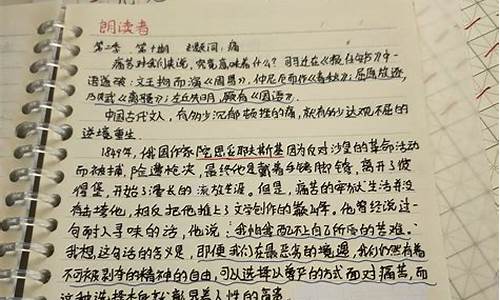 朗读者
第二季 第十期 主题词:痛
痛苦对我们来说,究竟意味着什么?司马迁在《报任安书》中一
语道破:文王拘而演《周易》,仲尼厄而作《春秋》;屈原放逐,
乃赋《离骚》;左丘失明,厥有《国语》.
中国古代文人,有多少沉郁顿挫的痛,就有多少达观不屈的
逆境重生.
1849年,俄国作家陀思妥耶夫斯基因为反对沙皇的革命活动
而被捕,险遭枪决,最终他是戴着手铐脚镣,离开了彼
得堡,开始了漫长的流放生涯。但是,痛苦的牢狱生活并没
有击垮他,相反把他推上了文学创作的巅峰。他曾经说过一
句耐人寻味的话,他说:我怕我配不上自己所受的苦难。
我想,这句话的含义是,即便我们在最恶劣的境遇,我们仍然有着
不可被剥夺的精神的自由,可以选择以尊严的方式面对痛苦,而
这种选择本身就彰显着人性的高贵